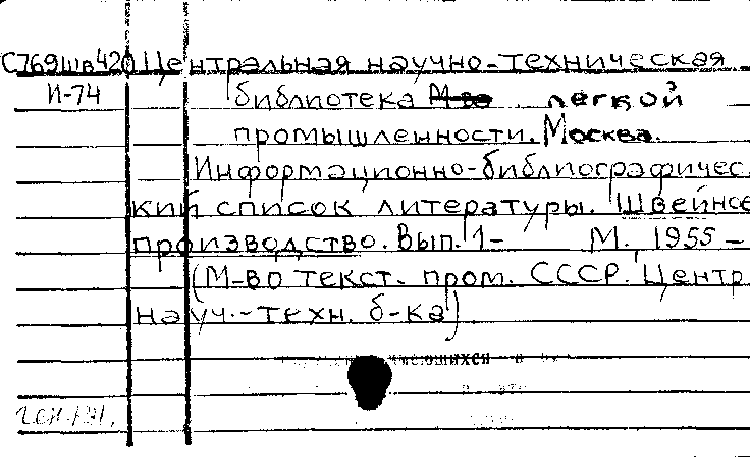 С769шв420 Центральная научно-техническая
И-74 библиотека М-ва легкой
промышленности. Москва.
Информационно-библиографичес-
кий список литературы. Швейное
производство. Вып. 1- М., 1955 -
(М-во текст. пром. СССР. Центр.
науч.-техн. б-ка)
имеющихся в